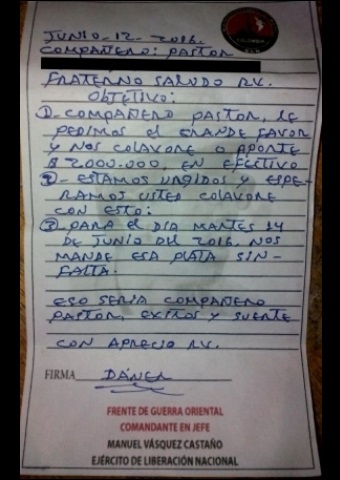 JUNIO-12-2016.
COMPAÑERO: PASTOR
FRATERNO SALUDO RV.
OBJETIVO:
①-COMPAÑERO PASTOR, LE
PEDIMOS EL GRANDE FAVOR
Y NOS COLAVORE O APORTE
$2.000.000, EN EFECTIVO
②-ESTAMOS URGIDOS Y ESPE-
RAMOS USTED COLAVORE
CON ESTO:
③-PARA EL DIA MARTES 14
DE JUNIO DEL 2016. NOS
MANDE ESA PLATA SIN-
FALTA.
ESO SERIA COMPAÑERO
PASTOR, EXITOS Y SUERTE
CON APRECIO RV.
FIRMA DANER
FRENTE DE GUERRA ORIENTAL
COMANDANTE EN JEFE
MANUEL VÁSQUEZ CASTAÑO
EJÉRCITO DE LIBERACIÓN NACIONAL